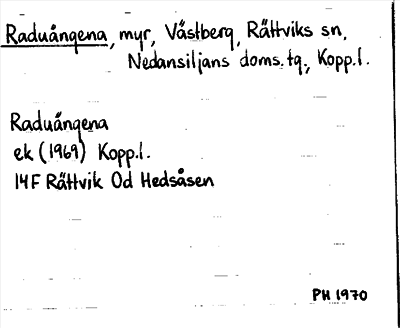 Raduångena, myr, Västberg, Rättviks sn,
Nedansiljans doms.tg., Kopp.l.
Raduångena
ek (1969) Kopp.l.
14F Rättvik 0d Hedsåsen
PH 1970